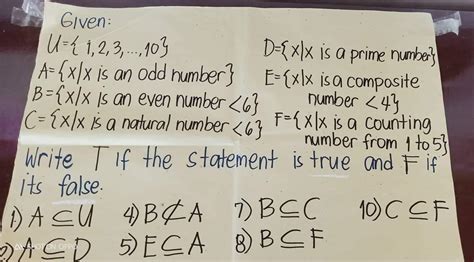 Given:
U={1,2,3,...,10}
A={x|x is an odd number}
B={x|x is an even number <6}
C={x|x is a natural number <6}
D={x|x is a prime number}
E={x|x is a composite
number <4}
F={x|x is a counting
number from 1 to 5}
Write T if the statement is true and F if
its false.
1) A ⊆ U 4) B ⊄ A 7) B ⊆ C 10) C ⊆ F
A ⊆ D 5) E ⊆ A 8) B ⊆ F